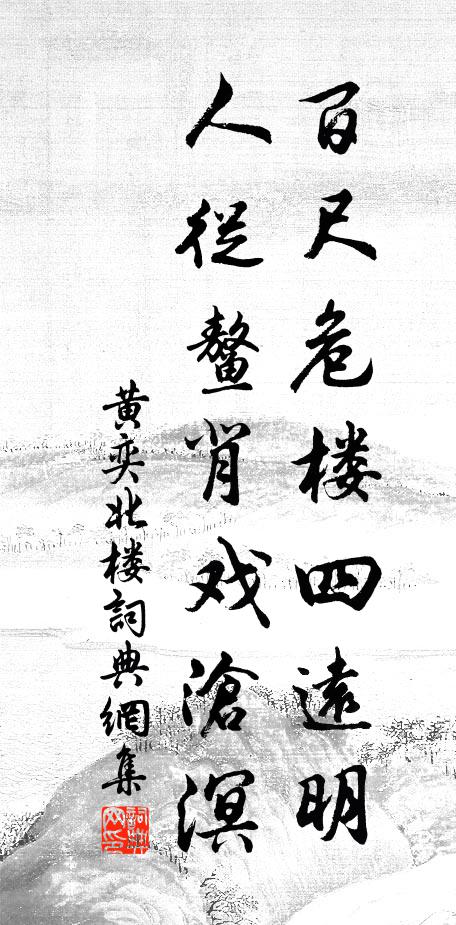 百尺危楼四遠明
人從鳌肖戏滄溟
黄奕北楼詞典網集